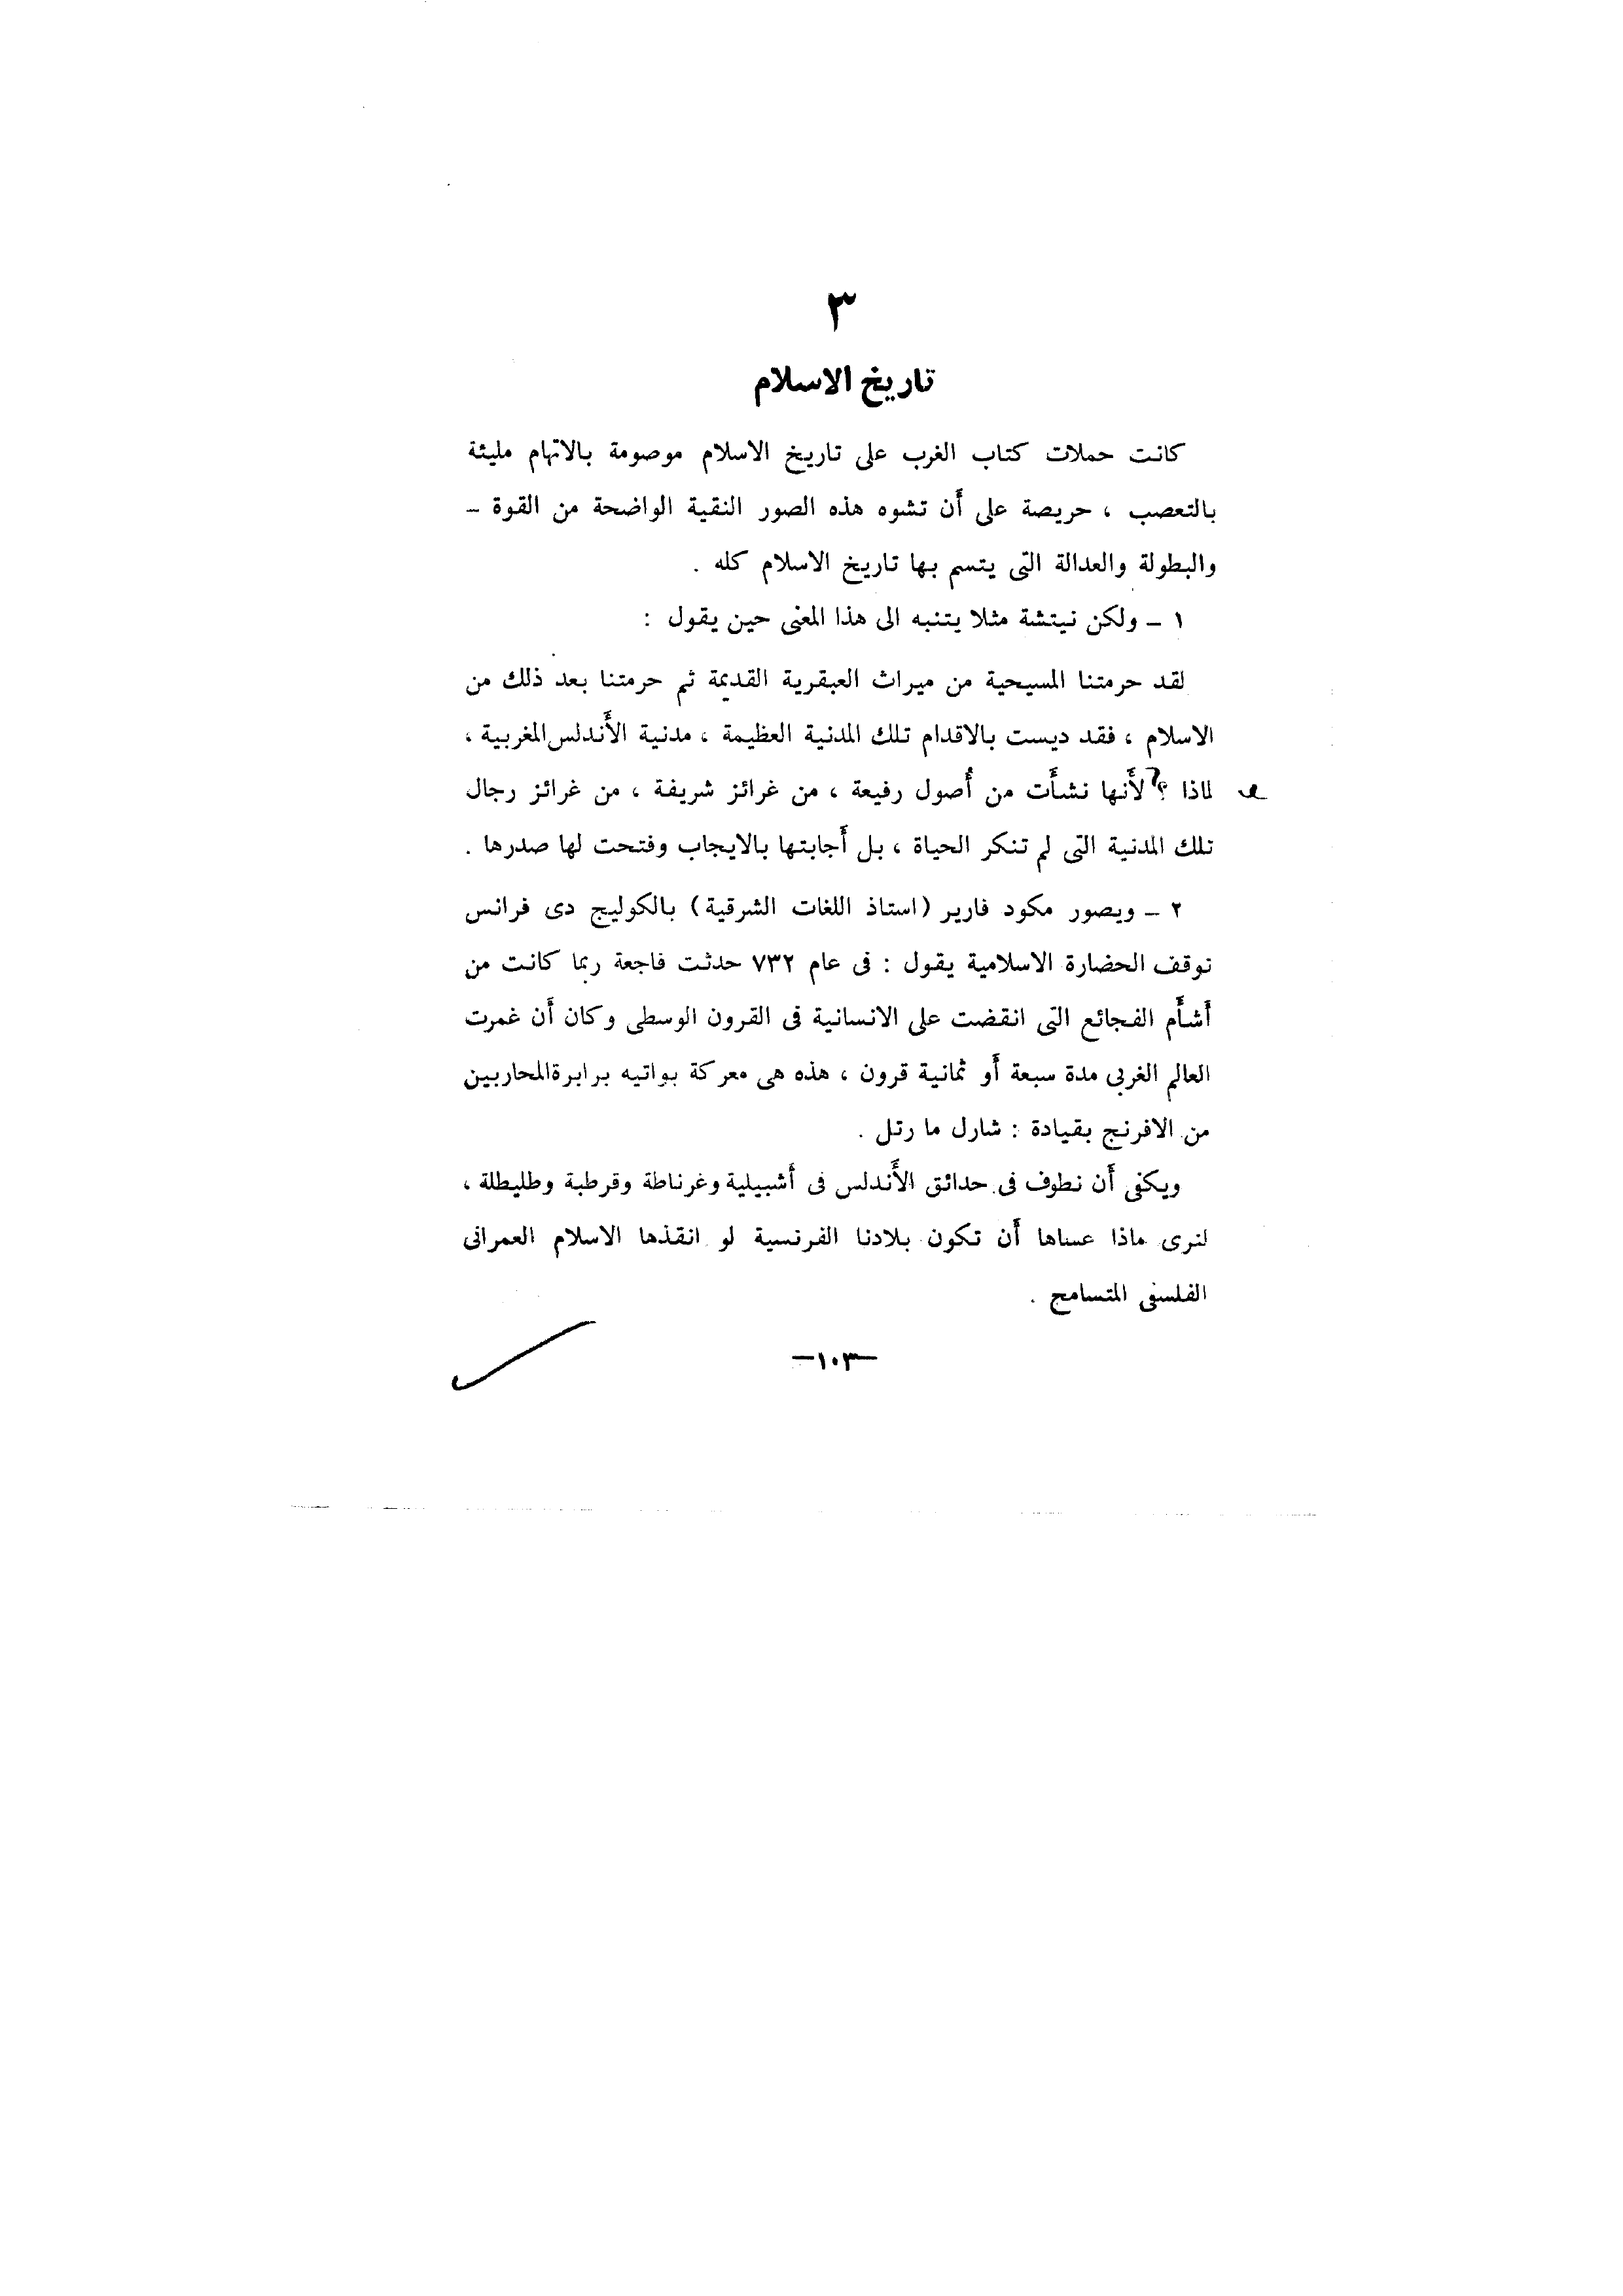 ٣
تاريخ الاسلام
كانت حملات كتاب الغرب على تاريخ الاسلام موصومة بالاتهام مليئة
بالتعصب ، حريصة على أن تشوه هذه الصور النقية الواضحة من القوة –
والبطولة والعدالة التى يتسم بها تاريخ الاسلام كله .
١ – ولكن نيتشة مثلا يتنبه الى هذا المعنى حين يقول :
لقد حرمتنا المسيحية من ميراث العبقرية القديمة ثم حرمتنا بعد ذلك من
الاسلام ، فقد ديست بالاقدام تلك المدنية العظيمة ، مدنية الأندلس المغربية ،
لماذا ؟ لأنها نشأت من أصول رفيعة ، من غرائز شريفة ، من غرائز رجال
تلك المدنية التى لم تنكر الحياة ، بل أجابتها بالايجاب وفتحت لها صدرها .
٢ – ويصور مكود فارير (استاذ اللغات الشرقية) بالكوليج دى فرانس
توقف الحضارة الاسلامية يقول : فى عام ٧٣٢ حدثت فاجعة ربما كانت من
أشأم الفجائع التى انقضت على الانسانية فى القرون الوسطى وكان أن غمرت
العالم الغربى مدة سبعة أو ثمانية قرون ، هذه هى معركة بواتيه برابرة المحاربين
من الافرنج بقيادة : شارل ما رتل .
ويكفى أن نطوف فى حدائق الأندلس فى أشبيلية وغرناطة وقرطبة وطليطلة ،
لنرى ماذا عساها أن تكون بلادنا الفرنسية لو انقذها الاسلام العمرانى
الفلسفى المتسامح .
–١٠٣–